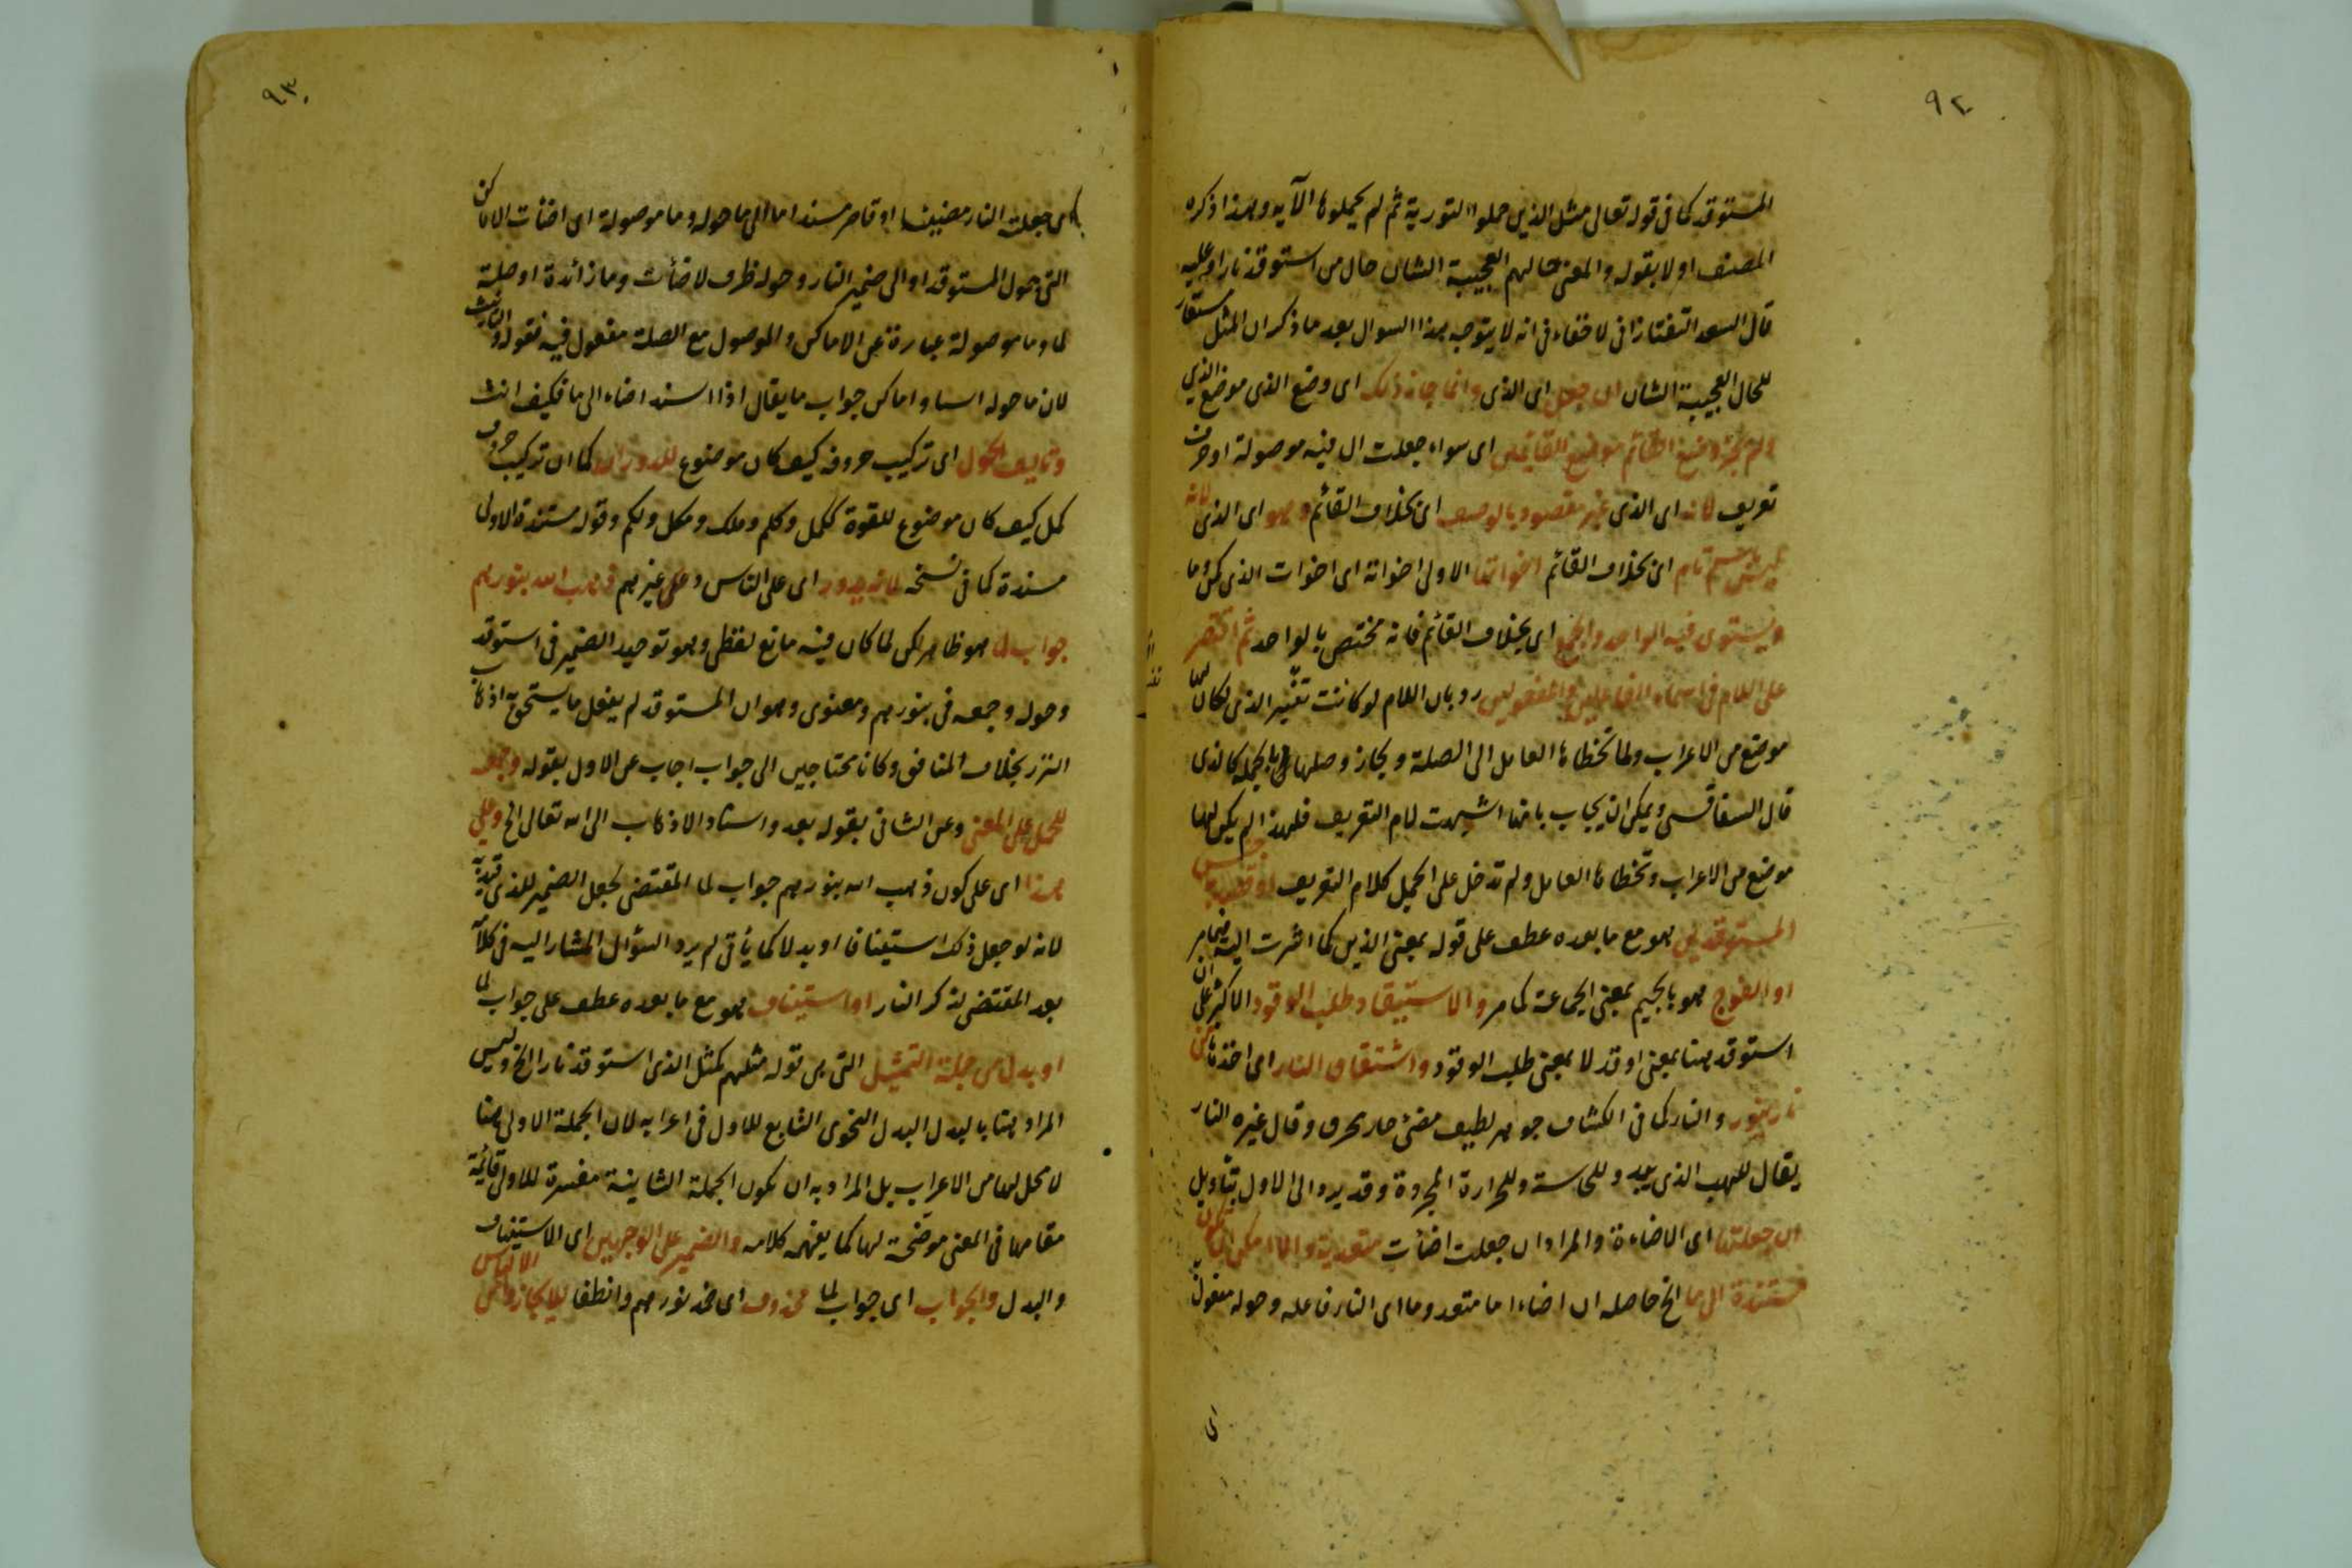 ٩٢
المستوقد كما فى قوله تعالى مثل الذين حملوا التورية ثم لم يحملوها الآية وبهذا ذكره
المصنف اولا بقوله والمعنى حالهم العجيبة الشان حال من استوقد نارا وعليه
قال السعد التفتازانى لا خفاء فى انه لا يتوجه هذا السوال بعد ما ذكر ان المثل مستعار
للحال العجيبة الشان ان جعل اى الذى وانما جاز ذلك اى وضع الذى موضع الذين
ولم يجز وضع القائم موضع القايمين اى سواء جعلت ال فيه موصولة او حرف
تعريف لانه اى الذى غير مقصود بالوصف اى بخلاف القائم وهو اى الذى لانه
ليس باسم تام اى بخلاف القائم اخواتها الاولى اخواته اى اخوات الذى كمن وما
ويستوى فيه الواحد والجمع اى بخلاف القائم فانه مختص بالواحد ثم اقتصر
على اللام فى اسماء الفاعلين والمفعولين رد بان اللام لو كانت بقية الذى لكان لها
موضع من الاعراب ولما تخطاها العامل الى الصلة ويجاز وصلها بالجملة كالذى
قال السفاقسى ويمكن ان يجاب بانها اشبهت لام التعريف فلهذا لم يكن لها
موضع من الاعراب وتخطاها العامل ولم تدخل على الجمل كلام التعريف او قصد به جنس
المستوقدين هو مع ما بعده عطف على قوله بمعنى الذين كما اشرت اليه فيما مر
او الفوج هو بالجيم بمعنى الجماعة كما مر والاستيقاد طلب الوقود الاكثر على ان
استوقد هنا بمعنى اوقد لا بمعنى طلب الوقود واشتقاق النار اى اخذها من
نار ينور والنار كما فى الكشاف جوهر لطيف مضئ حار محرق وقال غيره النار
يقال للهب الذى يبدو للحاسة وللحرارة المجردة وقد يرد الى الاول بتأويل
ان جعلتها اى الاضاءة والمراد ان جعلت اضأت متعدية والا امكن ان تكون
مستندة الى ما الخ حاصله ان اضاء اما متعد وما اى النار فاعله وحوله مفعوله
اى
٩٣
اى جعلت النار مضيئا او قاصر مسند اما الى ما حوله وما موصولة اى اضأت الاماكن
التى حول المستوقد او الى ضمير النار وحوله ظرف لاضأت وما زائدة او صلة
لما وما موصولة عبارة عن الاماكن والموصول مع الصلة مفعول فيه فقوله والتأنيث
لان ما حوله اسيا واماكن جواب ما يقال اذا اسند اضاء الى ما فكيف انث
وتاليف الحول اى تركيب حروفه كيف كان موضوع للدوران كما ان تركيب حروف
كمل كيف كان موضوع للقوة ككمل وكلم وملك ومكل ولكم وقوله مستندة الاولى
مسندة كما فى نسخه لانه يدور اى على الناس وعلى غيرهم ذهب الله بنورهم
جواب لما هو ظاهر لكن لما كان فيه مانع لفظى وهو توحيد الضمير فى استوقد
وحوله وجمعه فى بنورهم ومعنوى وهو ان المستوقد لم يفعل ما يستحق به اذهاب
النور بخلاف المنافق وكانا محتاجين الى جواب اجاب عن الاول بقوله وجمعه
للحمل على المعنى وعن الثانى بقوله بعد واسناد الاذهاب الى الله تعالى الخ وعلى
هذا اى على كون ذهب الله بنورهم جواب لما المقتضى لجعل الضمير للذى قيد به
لانه لو جعل ذلك استينافا او بدلا كما يأتى لم يرد السؤال المشار اليه فى كلامه
بعد المقتضى لذكر النار او استيناف هو مع ما بعده عطف على جواب لما
او بدل من جملة التمثيل التى هى قوله مثلهم كمثل الذى استوقد نارا الخ وليس
المراد هنا بالبدل البدل النحوى التابع للاول فى اعرابه لان الجملة الاولى هنا
لا محل لها من الاعراب بل المراد به ان تكون الجملة الثانية مفسرة للاولى قائمة
مقامها فى المعنى موضحة لها كما يفهمه كلامه والضمير على الوجهين اى الاستيناف
والبدل والجواب اى جواب لما محذوف اى خمد نورهم وانطفا للايجاز وامن الالباس